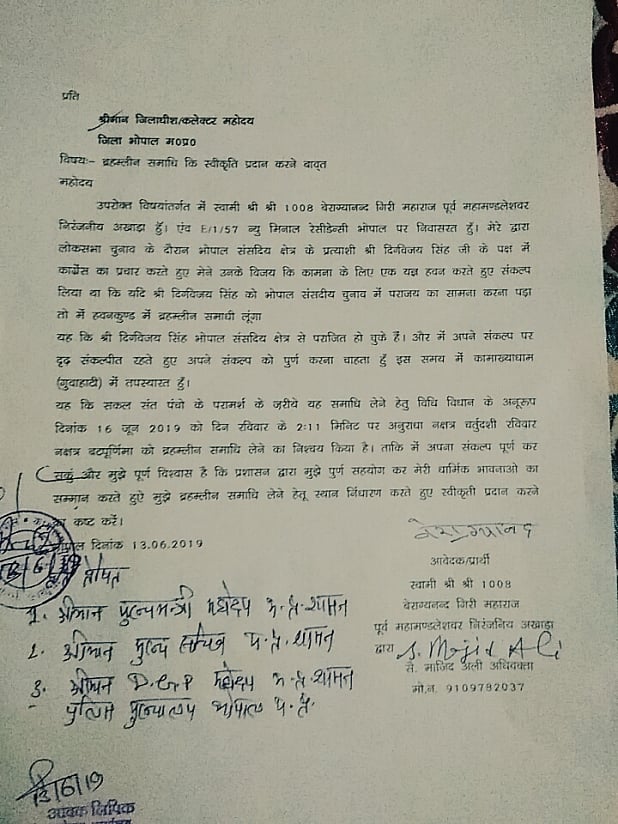 प्रति
श्रीमान जिलाधीश/कलेक्टर महोदय
जिला भोपाल म०प्र०
विषयः- ब्रहम्लीन समाधि कि स्वीकृति प्रदान करने बाव्त
महोदय
उपरोक्त विषयांतर्गत में स्वामी श्री श्री 1008 बेराग्यानन्द गिरी महाराज पूर्व महामण्डलेशवर
निरंजनीय अखाड़ा हूँ। एंव E/1/57 न्यु मिनाल रेसीडेन्सी भोपाल पर निवासरत हूँ। मेरे द्वारा
लोकसभा चुनाव के दौरान भोपाल संसदिय क्षेत्र के प्रत्याशी श्री दिगविजय सिंह जी के पक्ष में
कांग्रेंस का प्रचार करते हुए मेने उनके विजय कि कामना के लिए एक यज्ञ हवन करते हुए संकल्प
लिया था कि यदि श्री दिगविजय सिंह को भोपाल संसदीय चुनाव में पराजय का सामना करना पड़ा
तो में हवनकुण्ड में ब्रहम्लीन समाधी लूंगा
यह कि श्री दिगविजय सिंह भोपाल संसदिय क्षेत्र से पराजित हो चुके है। और में अपने संकल्प पर
दृढ़ संकल्पीत रहते हुए अपने संकल्प को पुर्ण करना चाहता हूँ इस समय में कामाख्याधाम
(गुवाहाटी) में तपस्यारत हूँ।
यह कि सकल संत पंचो के परामर्श के ज़रीये यह समाधि लेने हेतु विधि विधान के अनुरूप
दिनांक 16 जून 2019 को दिन रविवार के 2:11 मिनिट पर अनुराधा नक्षत्र चर्तुदशी रविवार
नक्षत्र बटपूर्णिमा को ब्रहम्लीन समाधि लेने का निश्चय किया है। ताकि में अपना संकल्प पूर्ण कर
सकूं और मुझे पूर्ण विश्वास है कि प्रशासन द्वारा मुझे पुर्ण सहयोग कर मेरी धार्मिक भावनाओ का
सम्मान करते हुऐ मुझे ब्रहम्लीन समाधि लेने हेतू स्थान निंधारण करते हुए स्वीकृती प्रदान करने
का कष्ट करें।
दिनांक 13.06.2019
आवेदक/प्रार्थी
स्वामी श्री श्री 1008
बेराग्यनन्द गिरी महाराज
पूर्व महामण्डलेशवर निरंजनिय अखाड़ा
द्वारा S. Majid Ali
सै. माजिद अली अधिवक्ता
मो.न. 9109782037
1. श्रीमान मुख्यमन्त्री महोदय म.प्र. शासन
2. श्रीमान मुख्य सचिव म.प्र. शासन
3. श्रीमान D.G.P महोदय म.प्र. शासन
पुलिस मुख्यालय भोपाल म.प्र.
13/6/19
आवक लिपिक